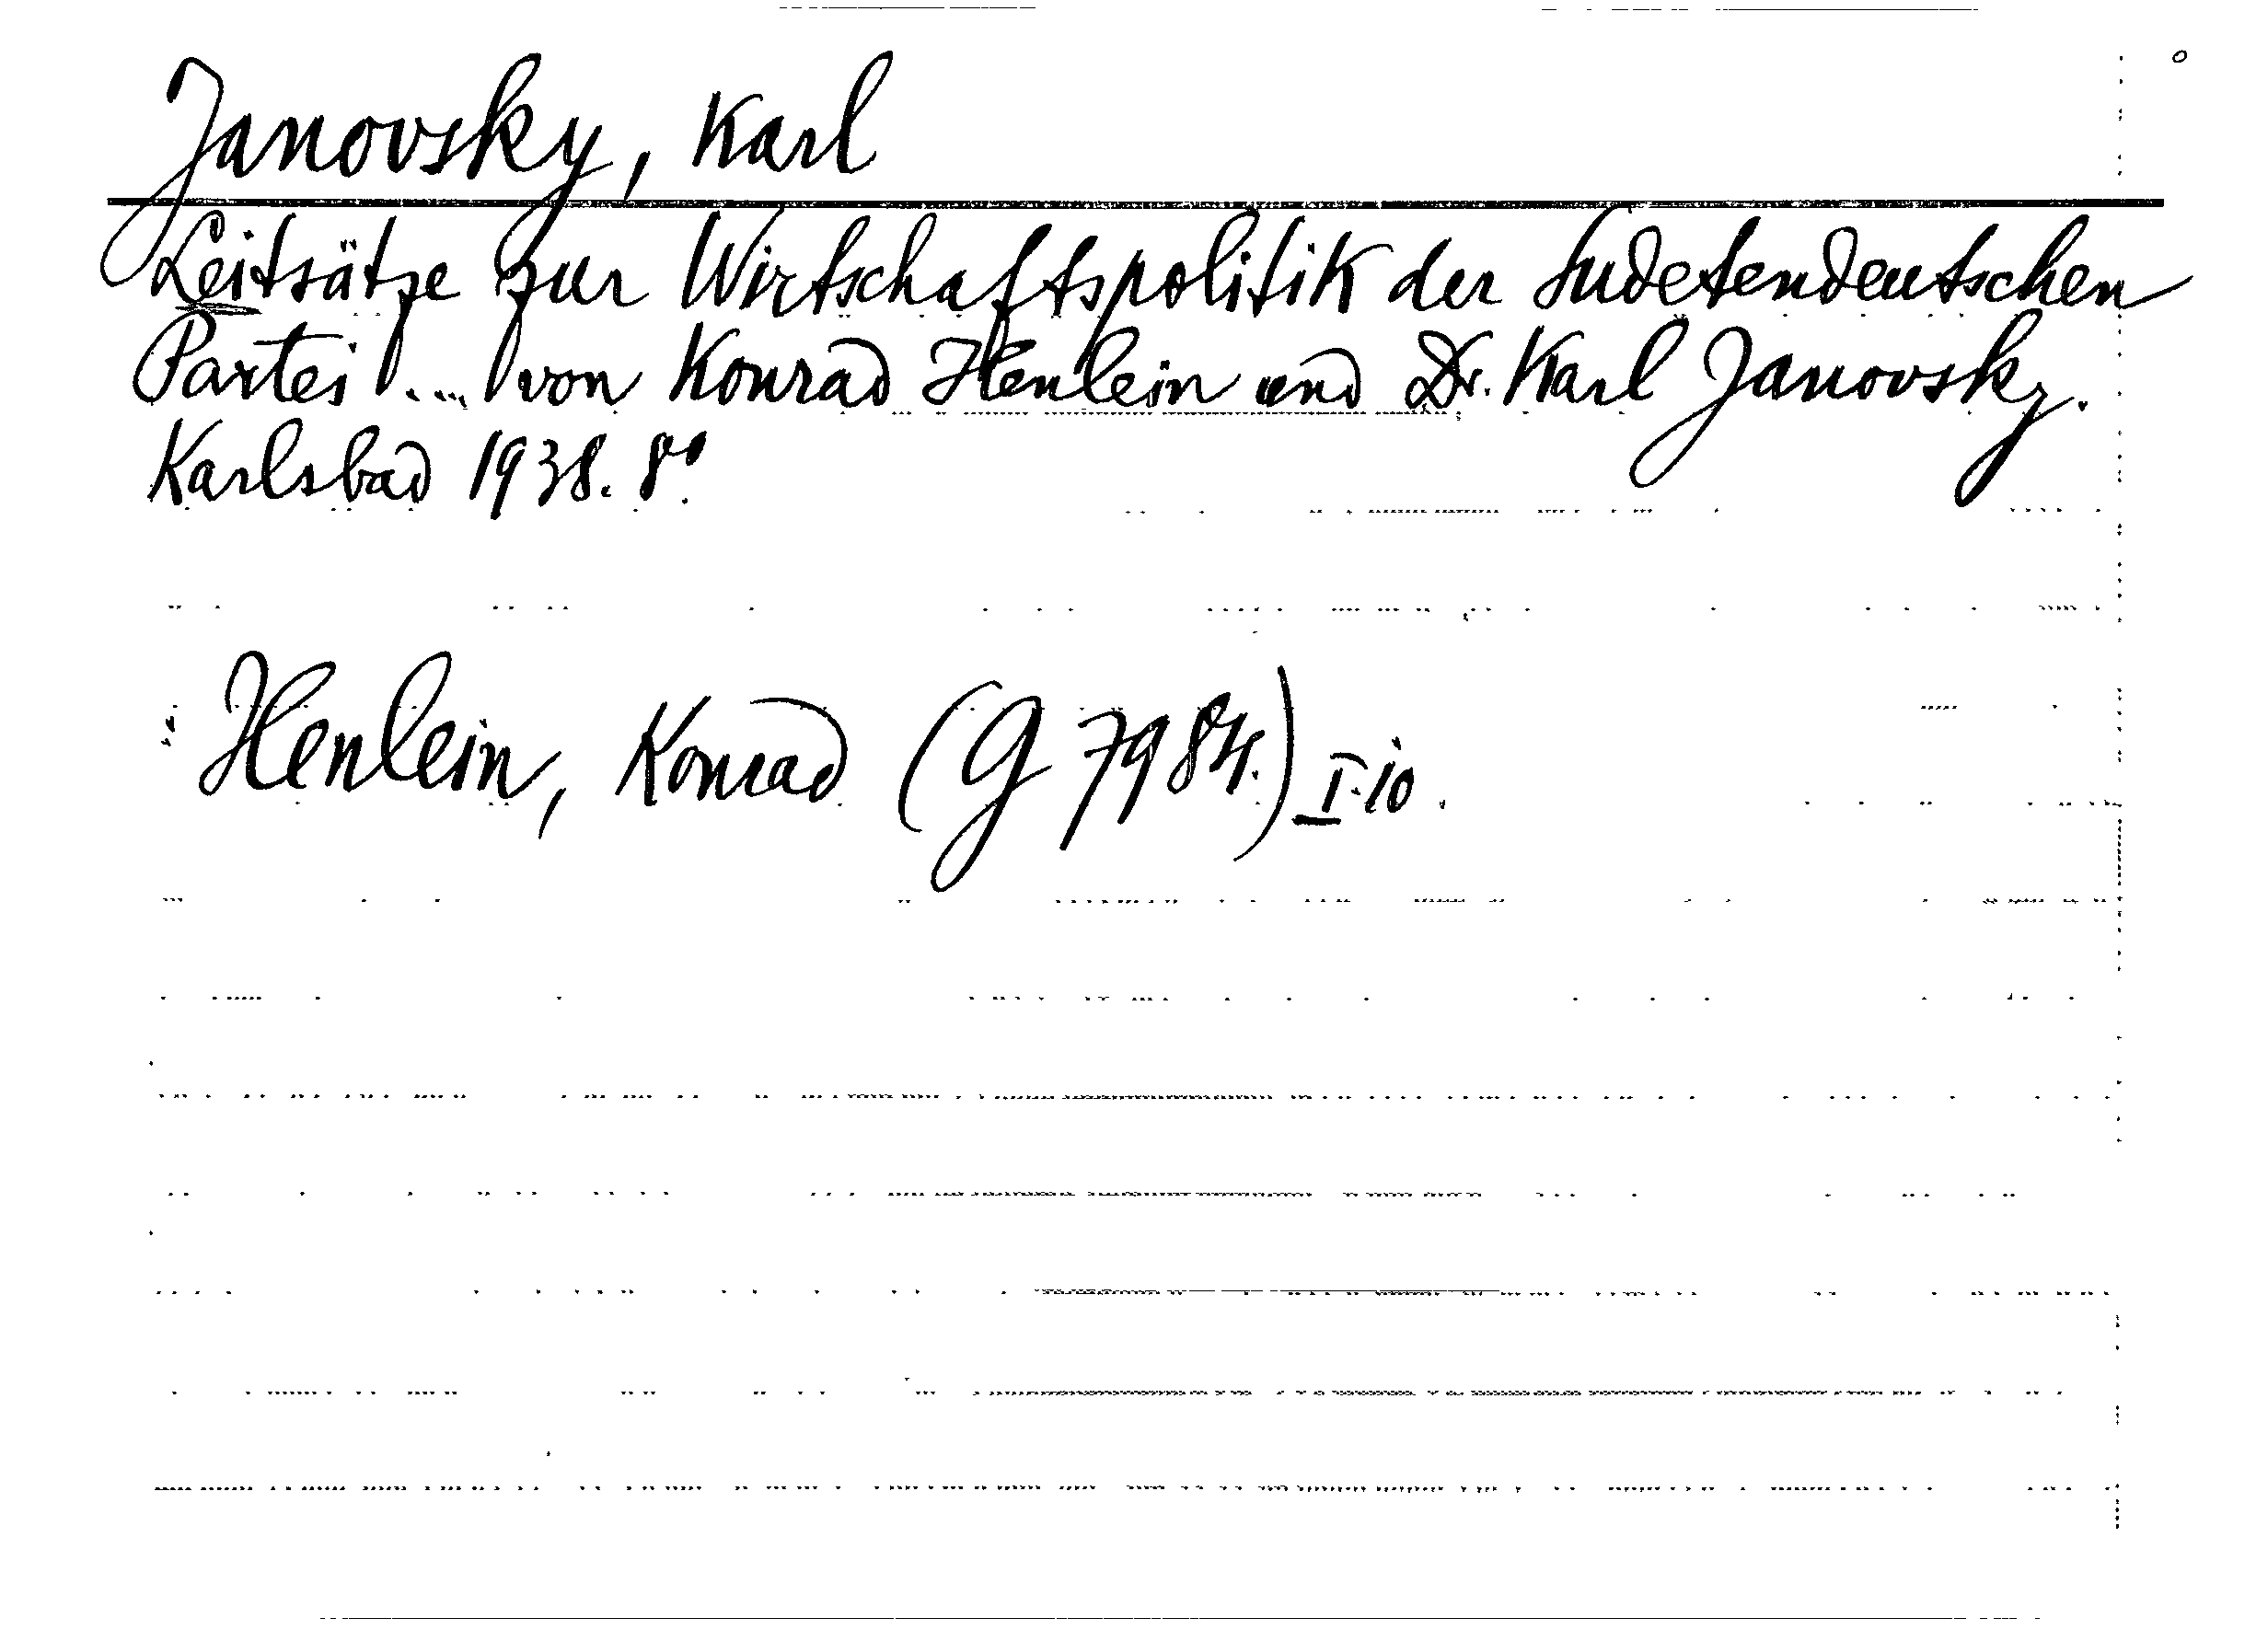 Janovsky, Karl
Leitsätze zur Wirtschaftspolitik der Sudetendeutschen
Partei ... von Konrad Henlein und Dr. Karl Janovsky.
Karlsbad 1938. 8°.
Henlein, Konrad (G 7984.) I.10.